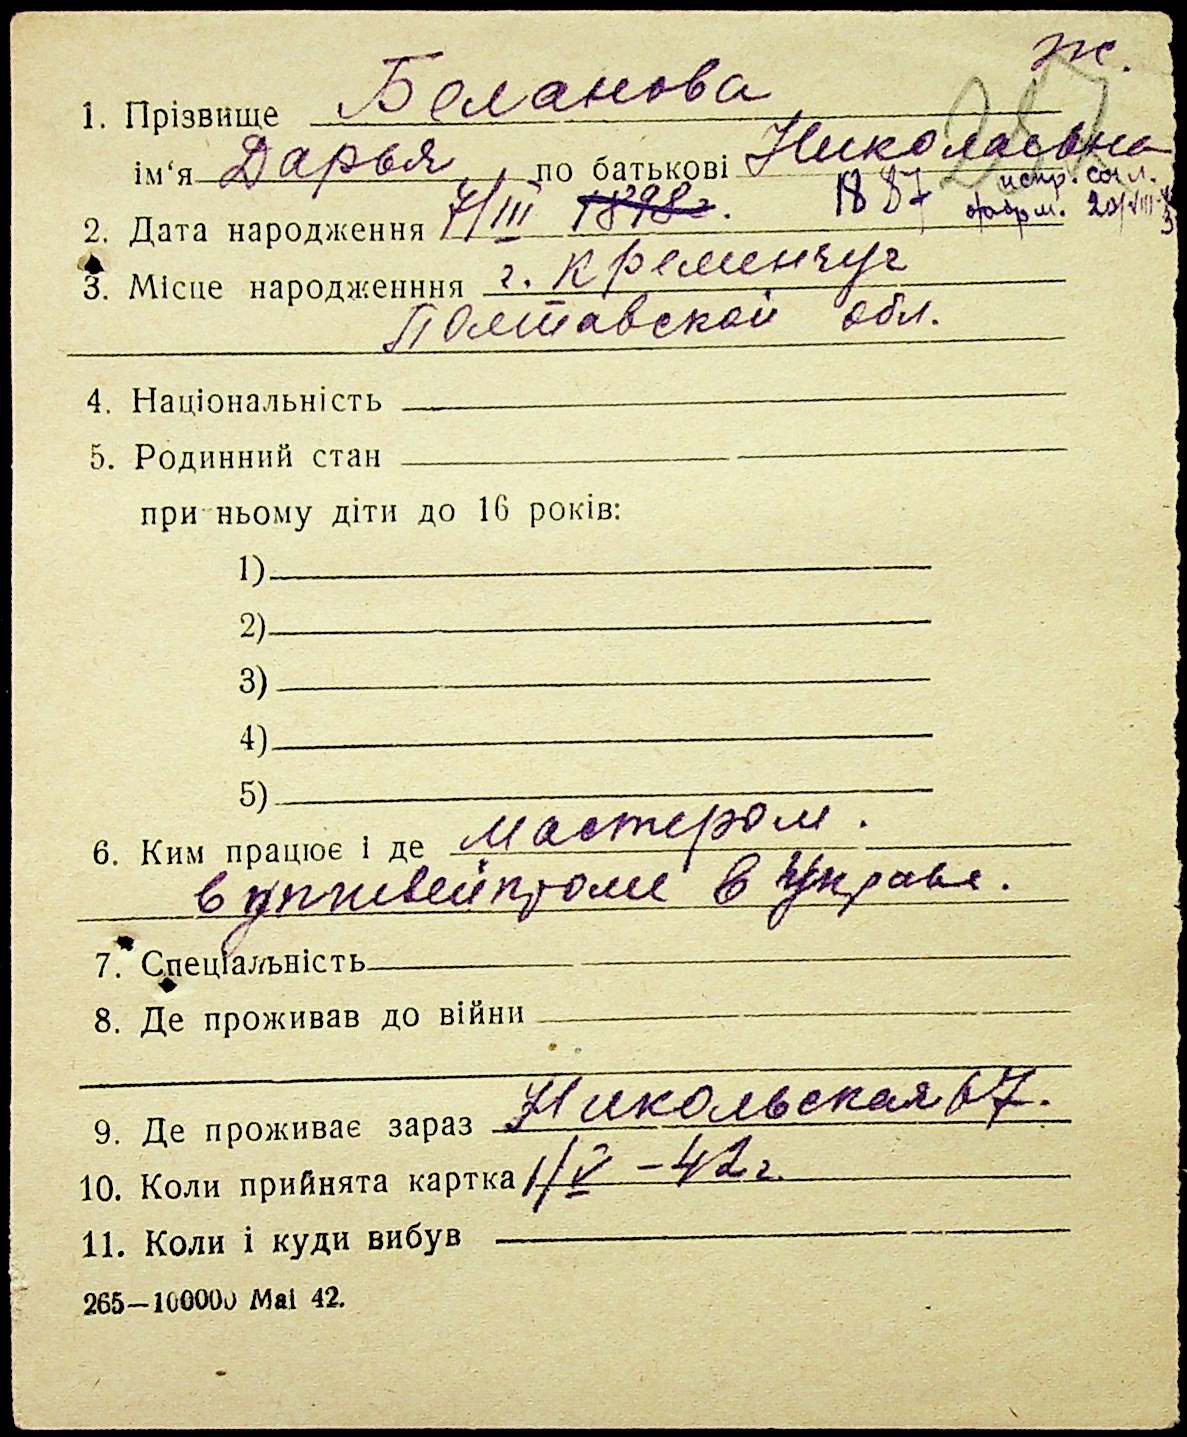 ж.
1. Прізвище Беланова
ім'я Дарья по батькові Николаевна
2. Дата народження 7/III 1898г. 1887 испр. согл.
20/VIII-43
3. Місце народженння г. Кременчуг
Полтавской обл.
4. Національність
5. Родинний стан
при ньому діти до 16 років:
1)
2)
3)
4)
5)
6. Ким працює і де мастером.
в в
7. Спеціальність
8. Де проживав до війни
9. Де проживає зараз Никольская 67.
10. Коли прийнята картка 1/V - 42 г.
11. Коли і куди вибув
265—100000 Mai 42.